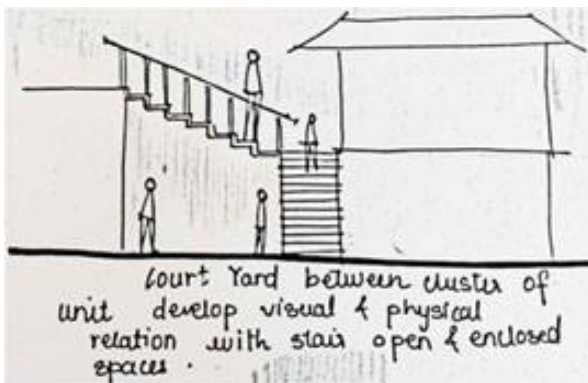 Court Yard between cluster of
unit develop visual & physical
relation with stair open & enclosed
spaces.